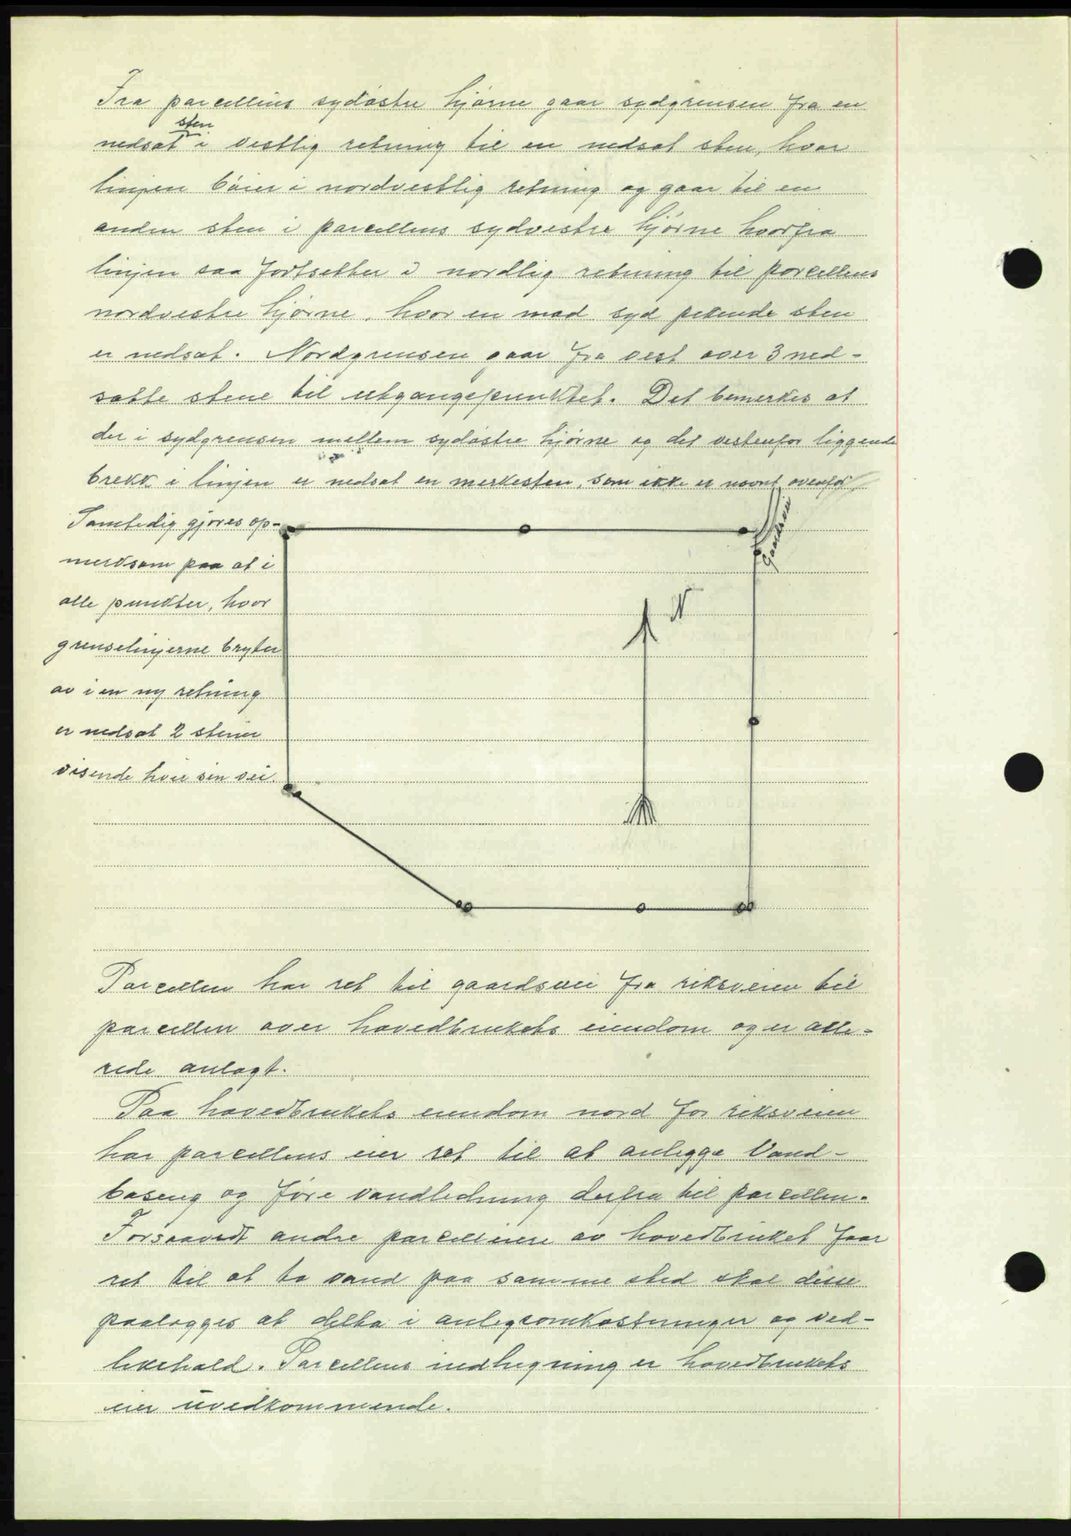 Fra parcellens sydøstre hjørne gaar sydgrensen fra en
nedsat sten i vestlig retning til en nedsat sten, hvor
linjen bøier i nordvestlig retning og gaar til en
anden sten i parcellens sydvestre hjørne hvorfra
linjen saa fortsetter i nordlig retning til parcellens
nordvestre hjørne, hvor en mod syd pekende sten
er nedsat. Nordgrensen gaar fra vest over 3 ned-
satte stene til utgangspunktet. Det bemerkes at
der i sydgrensen mellem sydøstre hjørne og det vestenfor liggende
brekk i linjen er nedsat en merkesten, som ikke er nevnt ovenfor
Samtidig gjøres op-
merksom paa at i
alle punkter, hvor
grenselinjerne bryter
av i en ny retning
er nedsat 2 stener
visende hver sin vei.
Gaardsvei
N
Parcellen har ret til gaardsvei fra riksveien til
parcellen over hovedbrukets eiendom og er alle-
rede anlagt.
Paa hovedbrukets eiendom nord for riksveien
har parcellens eier ret til at anlegge Vand-
baseng og føre vandledning derfra til parcellen.
Forsaavidt andre parcelleiere av hovedbruket faar
ret til at ta vand paa samme sted skal disse
paalegges at delta i anlegsomkostninger og ved-
likehold. Parcellens indhegning er hovedbrukets
eier uvedkommende.